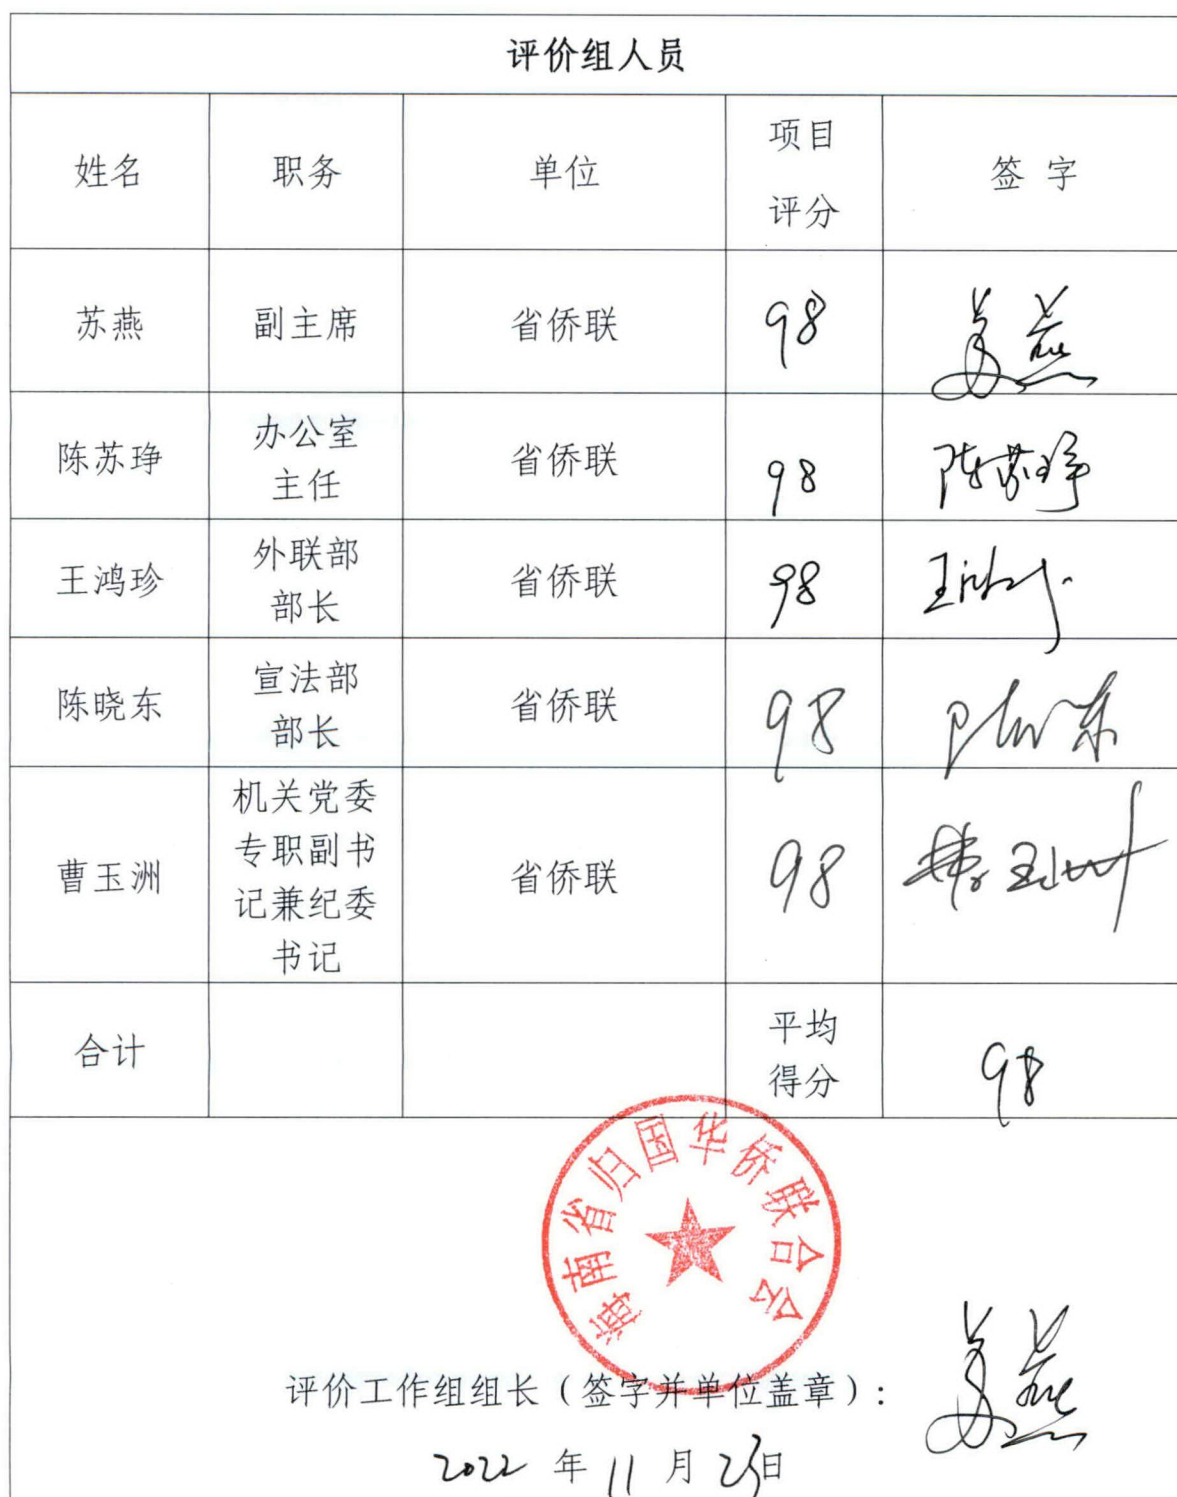 评价组人员
姓名 职务 单位 项目评分 签 字
苏燕 副主席 省侨联 98 苏燕
陈苏琤 办公室主任 省侨联 98 陈苏琤
王鸿珍 外联部部长 省侨联 98
陈晓东 宣法部部长 省侨联 98 陈晓东
曹玉洲 机关党委专职副书记兼纪委书记 省侨联 98 曹玉洲
合计 平均得分 98
海南省归国华侨联合会
评价工作组组长（签字并单位盖章）: 苏燕
2022 年 11 月 日